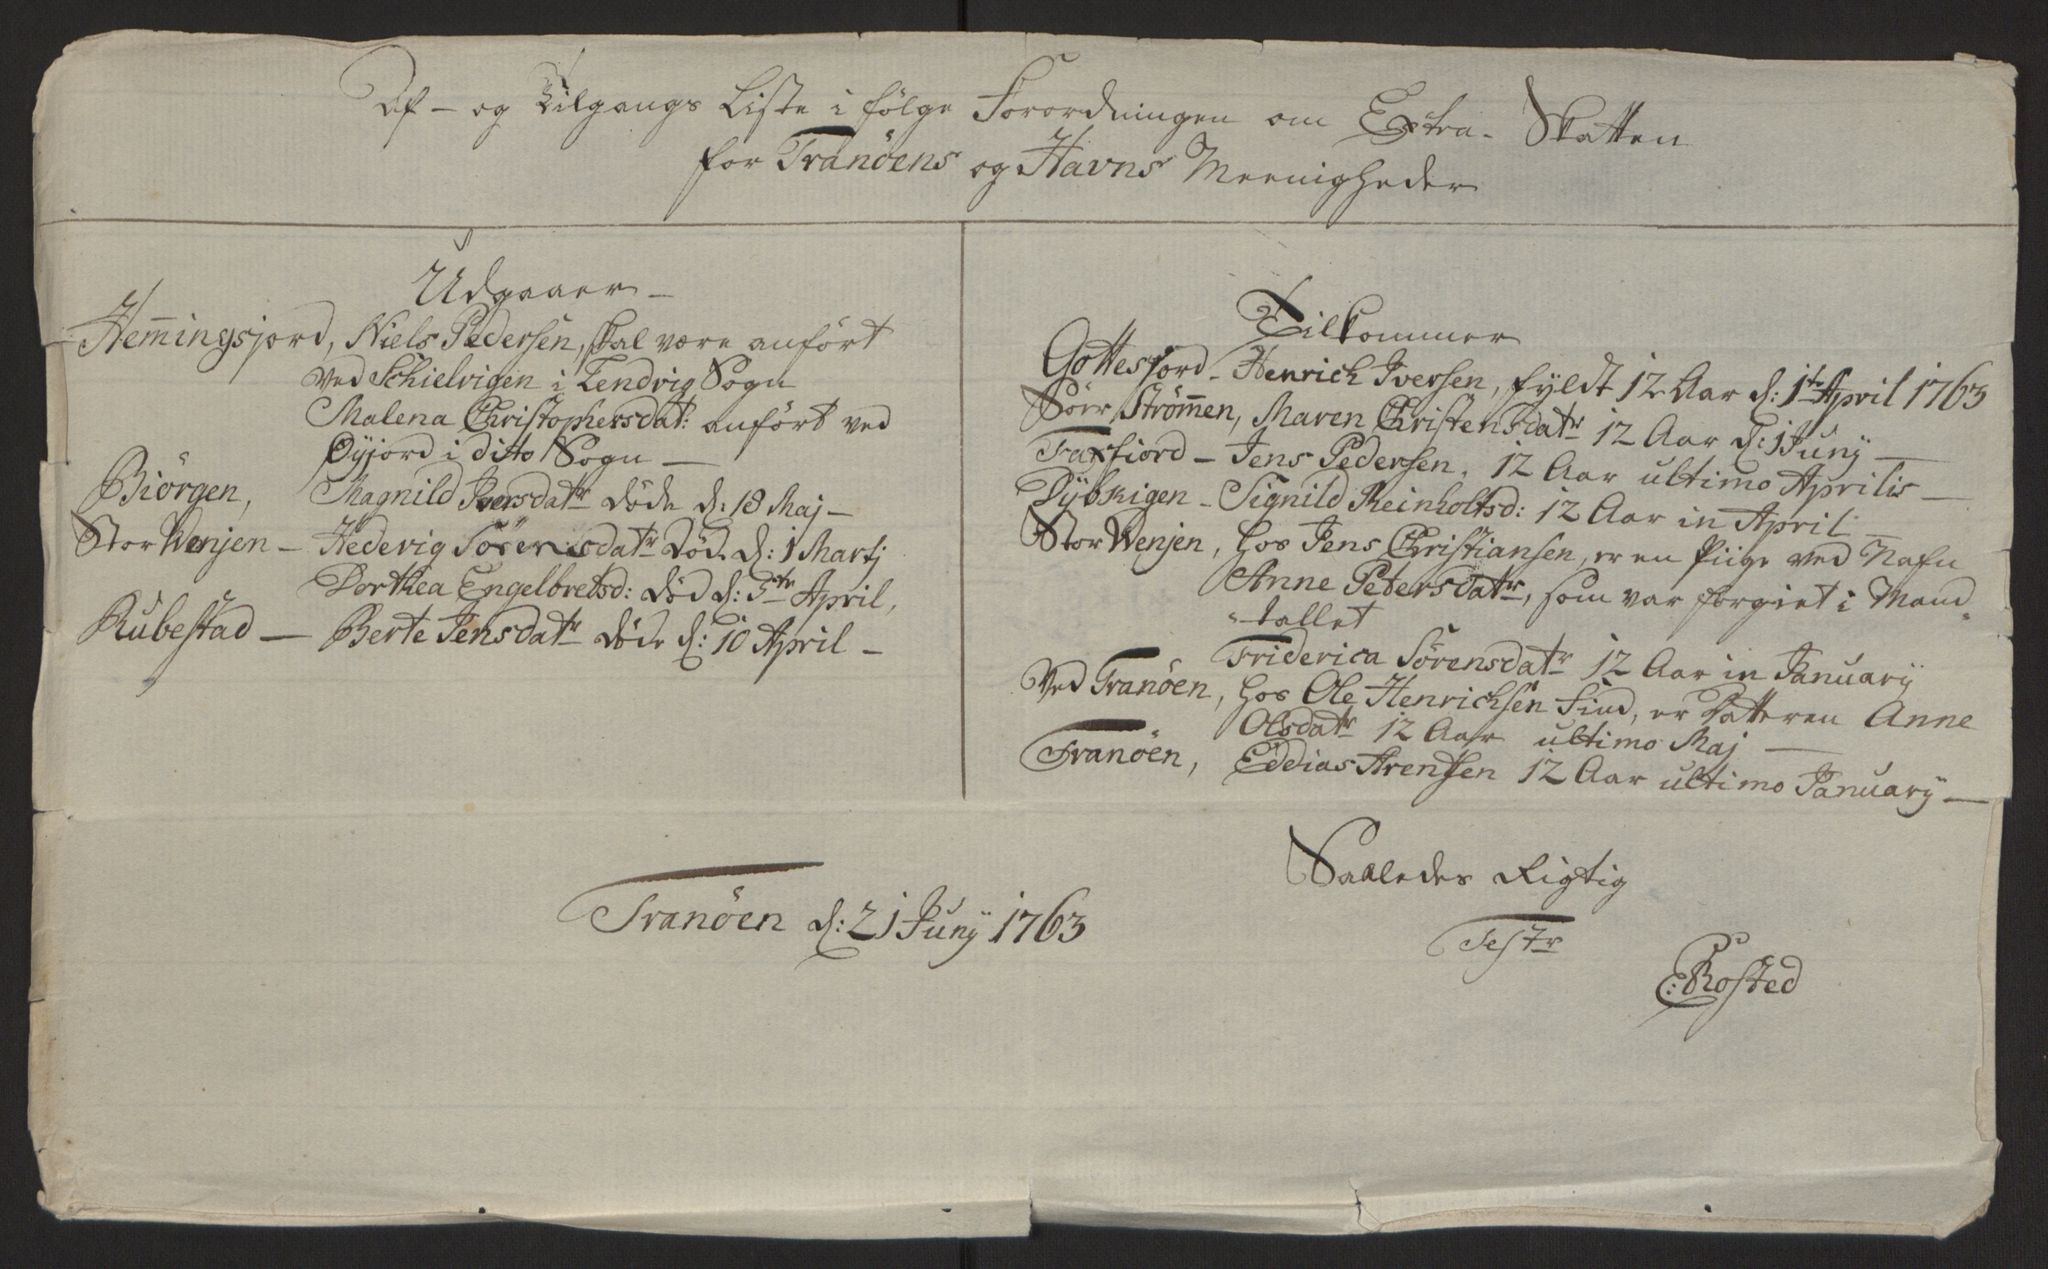 Af- og Tilgangs Liste i følge Forordningen om Extra-Skatten
for Tranöens og Havns Meenigheder
Udgaaer –
Hem̄ingsjord, Niels Pedersen, skal være anfört
ved Schielvigen i Tendvig Sogn
Malena Christophersdat: anfört ved
Øyjord i ditto Sogn –
Biörgen, Magnild Iversdatr döde d: 18 Maj –
Stor Wenjen – Hedevig Sörensdatr död d: 1 Martj
Dorthea Engelbretsd: död d: 3te April,
Rubestad – Berte Jensdatr döde d: 10 April –
Tilkommer
Gottesjord – Henrich Iversen, fyldt 12 Aar d: 1te April 1763
Söer Ström̄en, Maren Christensdatr 12 Aar d: 1 Juny –
Faxfiord – Jens Pedersen, 12 Aar ultimo Aprilis –
Dybvigen – Signild Reinholtsd: 12 Aar in April –
Stor Wenjen, hos Jens Christiansen, er en Piige ved Nafn
Anne Petersdatr, som var forgiet i Mand-
tallet
Friderica Sörensdatr 12 Aar in January
Ved Tranöen, hos Ole Henrichsen Find, er Datteren Anne
Olsdatr 12 Aar ultimo Maj –
Tranöen, Eddias Arentsen 12 Aar ultimo January –
Saaledes Rigtig
Tranöen d: 21 Juny 1763
Testr
E: Rosted